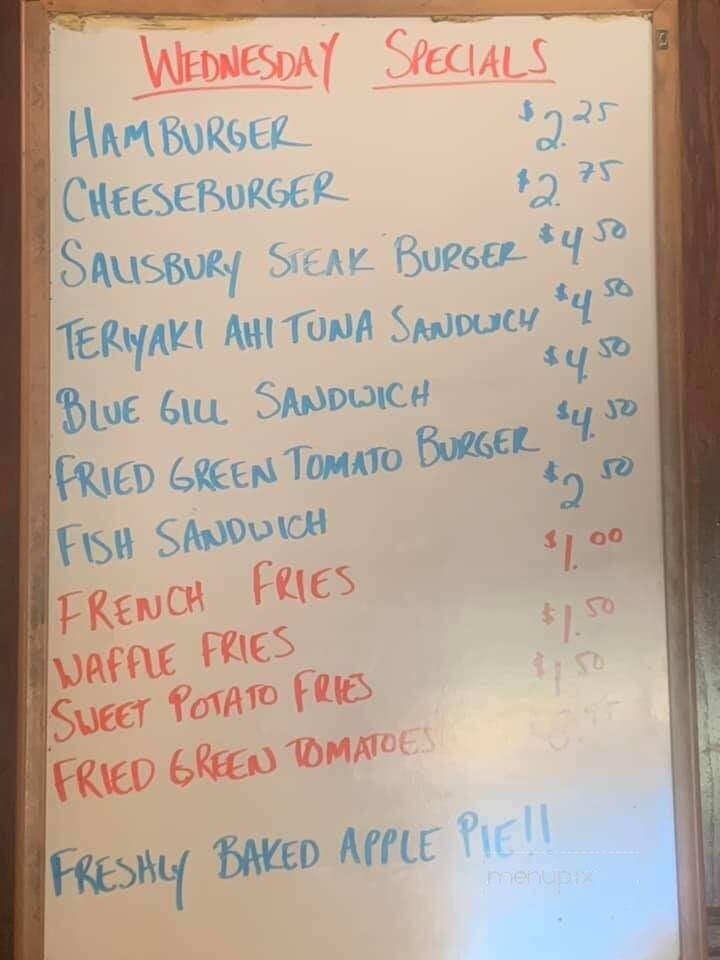 WEDNESDAY SPECIALS
HAMBURGER $2.25
CHEESEBURGER $2.75
SALISBURY STEAK BURGER $4.50
TERIYAKI AHI TUNA SANDWICH $4.50
BLUE GILL SANDWICH $4.50
FRIED GREEN TOMATO BURGER $4.50
FISH SANDWICH $2.50
FRENCH FRIES $1.00
WAFFLE FRIES $1.50
SWEET POTATO FRIES $1.50
FRIED GREEN TOMATOES
FRESHLY BAKED APPLE PIE!!
menupix